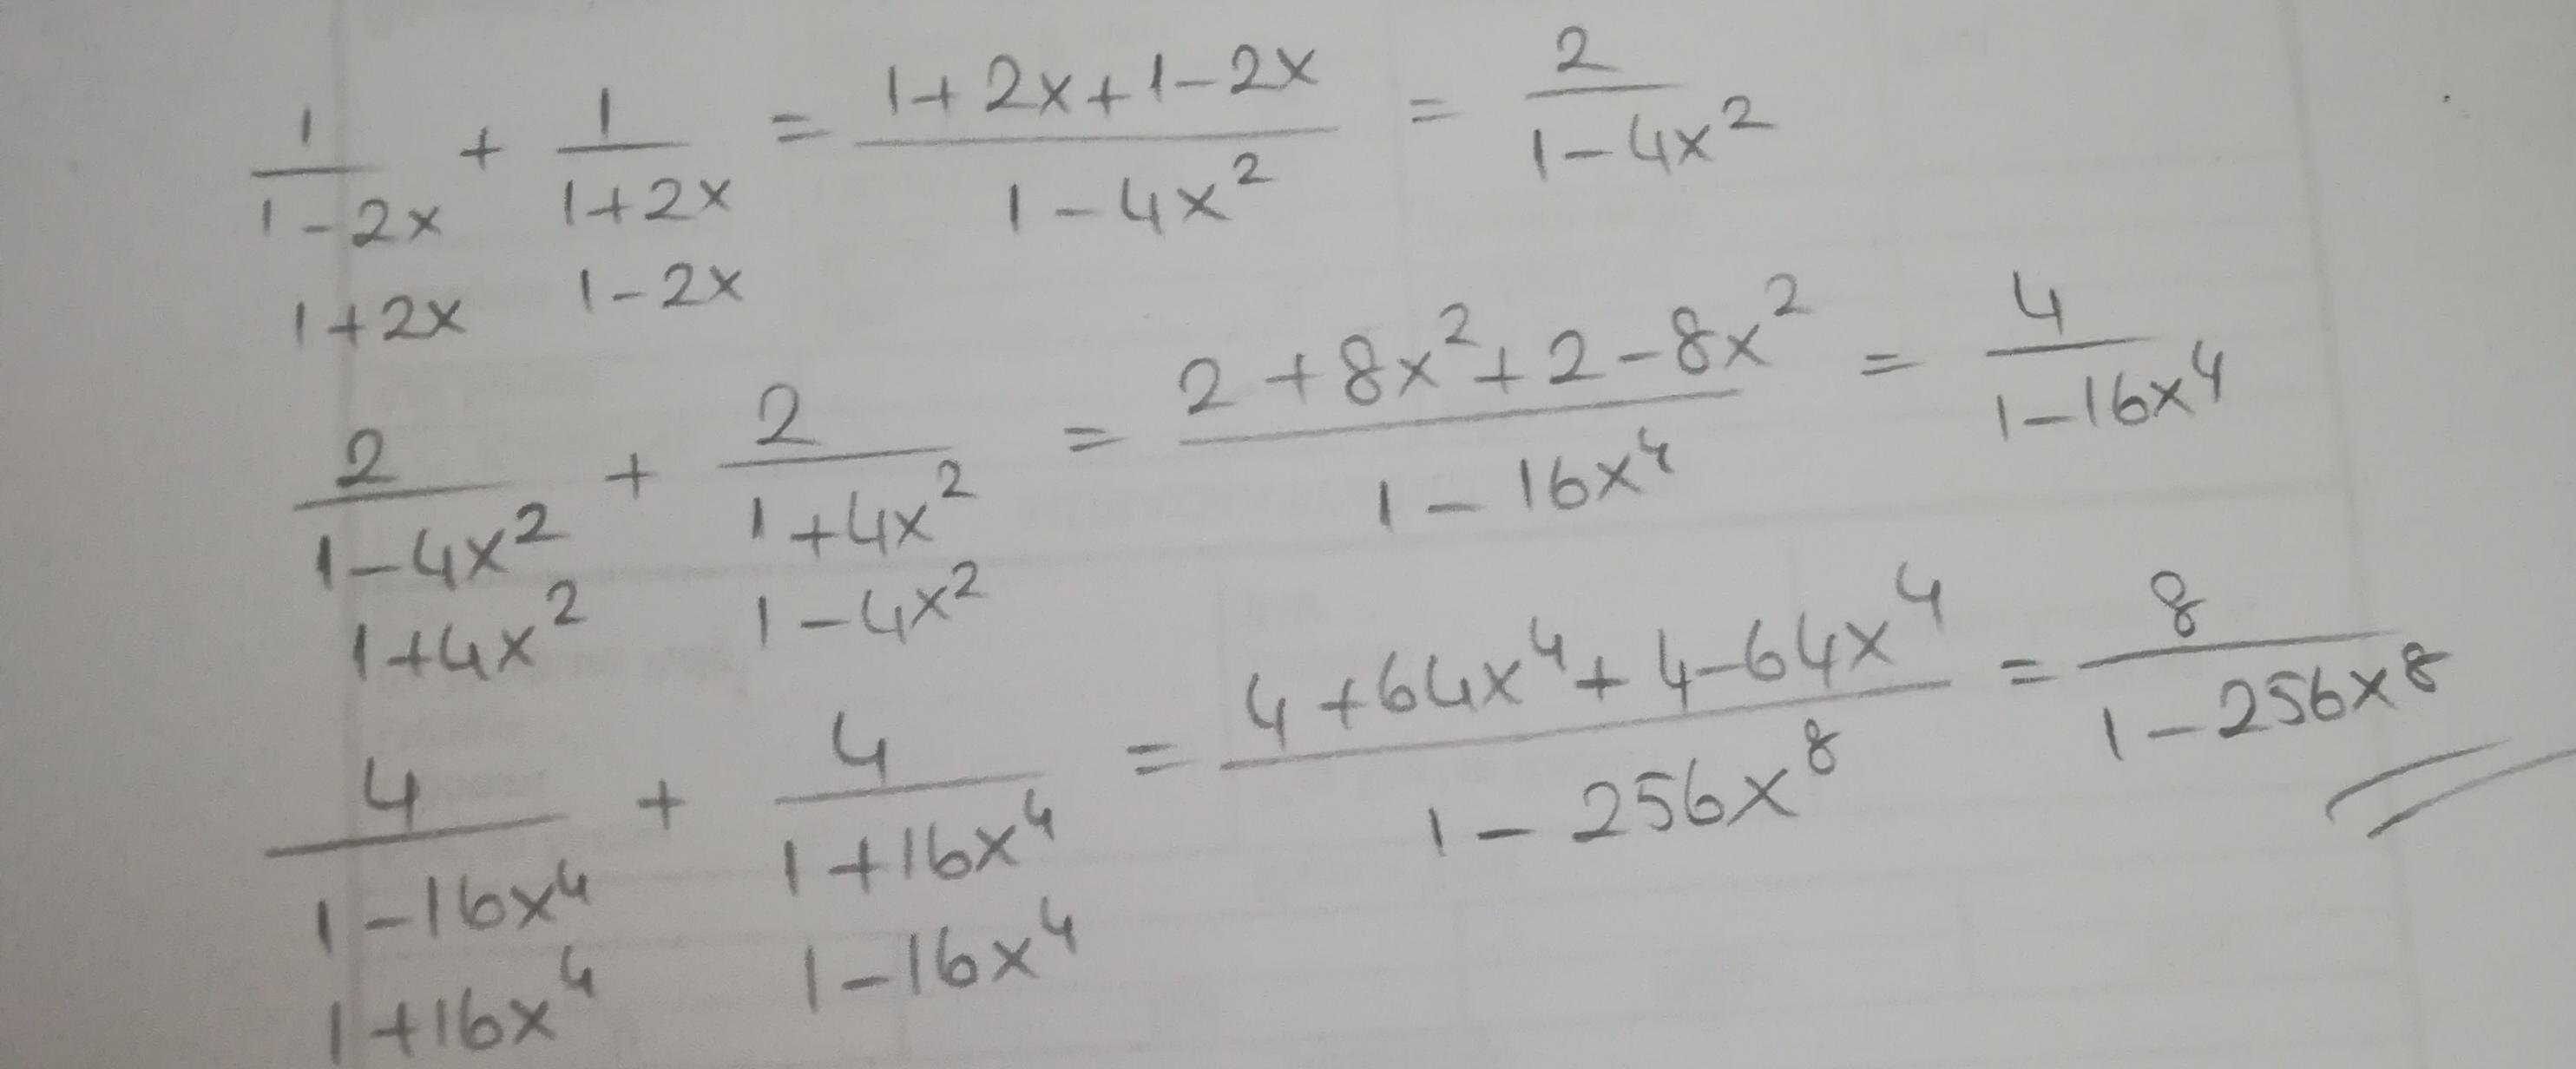 1/(1-2x) + 1/(1+2x) = (1+2x+1-2x)/(1-4x²) = 2/(1-4x²)
1+2x 1-2x
2/(1-4x²) + 2/(1+4x²) = (2+8x²+2-8x²)/(1-16x⁴) = 4/(1-16x⁴)
1+4x² 1-4x²
4/(1-16x⁴) + 4/(1+16x⁴) = (4+64x⁴+4-64x⁴)/(1-256x⁸) = 8/(1-256x⁸)
1+16x⁴ 1-16x⁴